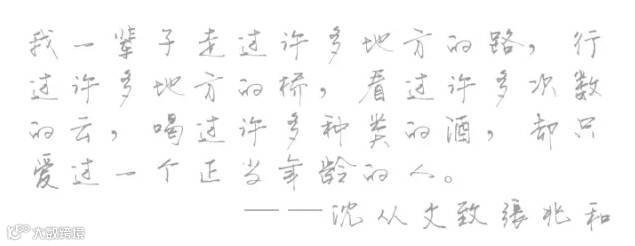 我一辈子走过许多地方的路，行
过许多地方的桥，看过许多次数
的云，喝过许多种类的酒，却只
爱过一个正当年龄的人。
——沈从文致張兆和
大数跨境